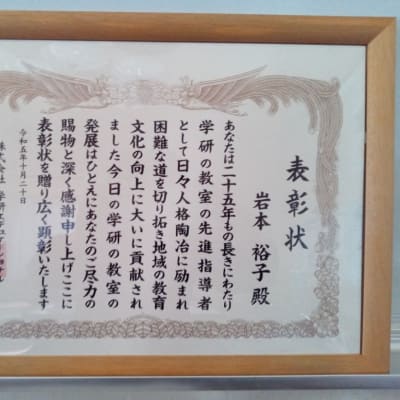 表彰状
岩本 裕子 殿
あなたは二十五年もの長きにわたり
学研の教室の先進指導者
として日々人格陶冶に励まれ
困難な道を切り拓き地域の教育
文化の向上に大いに貢献され
ました今日の学研の教室の
発展はひとえにあなたのご尽力の
賜物と深く感謝申し上げここに
表彰状を贈り広く顕彰いたします
令和五年十月二十日
株式会社 学研エデュケーショナル